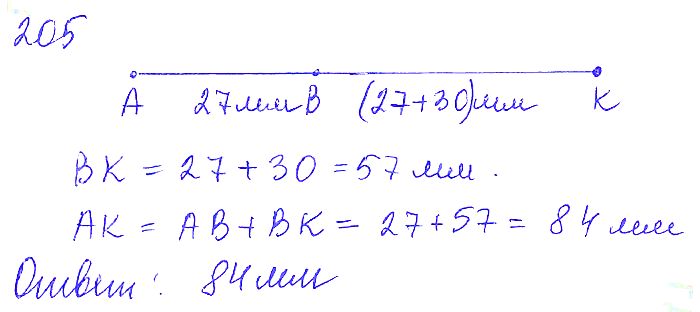 205
A 27мм B (27+30)мм K
BK = 27 + 30 = 57 мм.
AK = AB + BK = 27 + 57 = 84 мм
Ответ: 84 мм